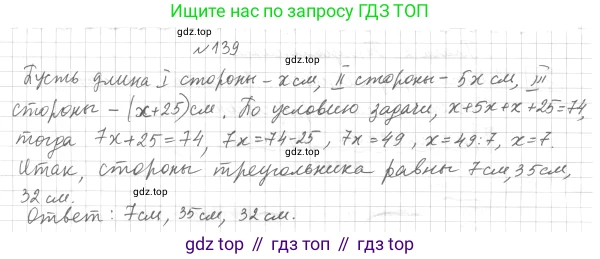 Ищите нас по запросу ГДЗ ТОП
gdz.top
№139
Пусть длина I стороны - x см, II стороны - 5x см, III
gdz.top
стороны - (x+25) см. По условию задачи, x+5x+x+25=74,
тогда 7x+25=74, 7x=74-25, 7x=49, x=49:7, x=7.
gdz.top
Итак, стороны треугольника равны 7см, 35см,
32 см.
Ответ: 7см, 35 см, 32 см.
gdz.top
gdz top // гдз top // гдз топ